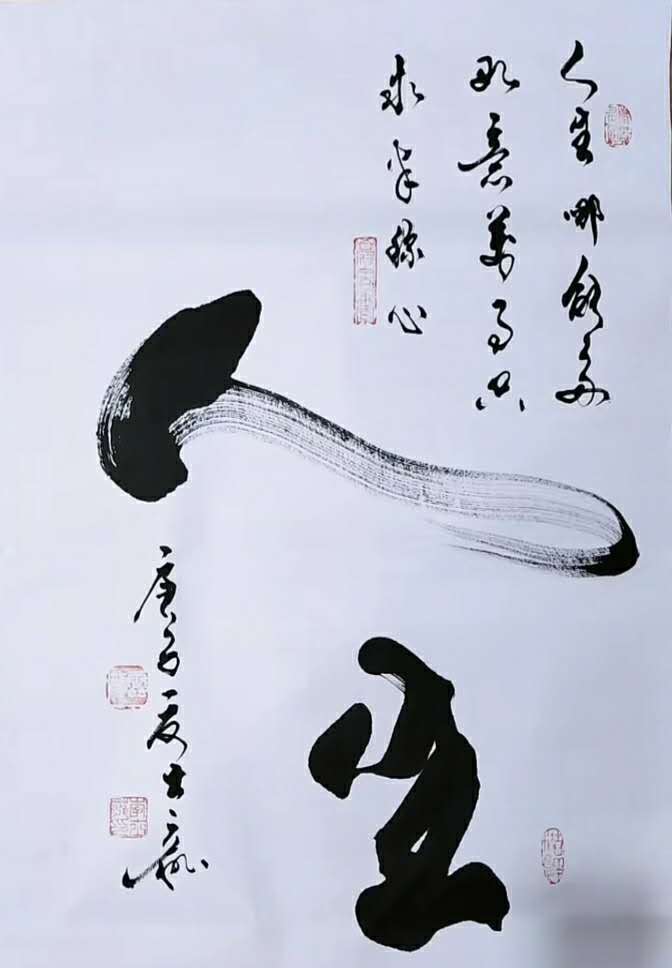 人生哪能多
如意萬事只
求半称心
人生
庚子夏